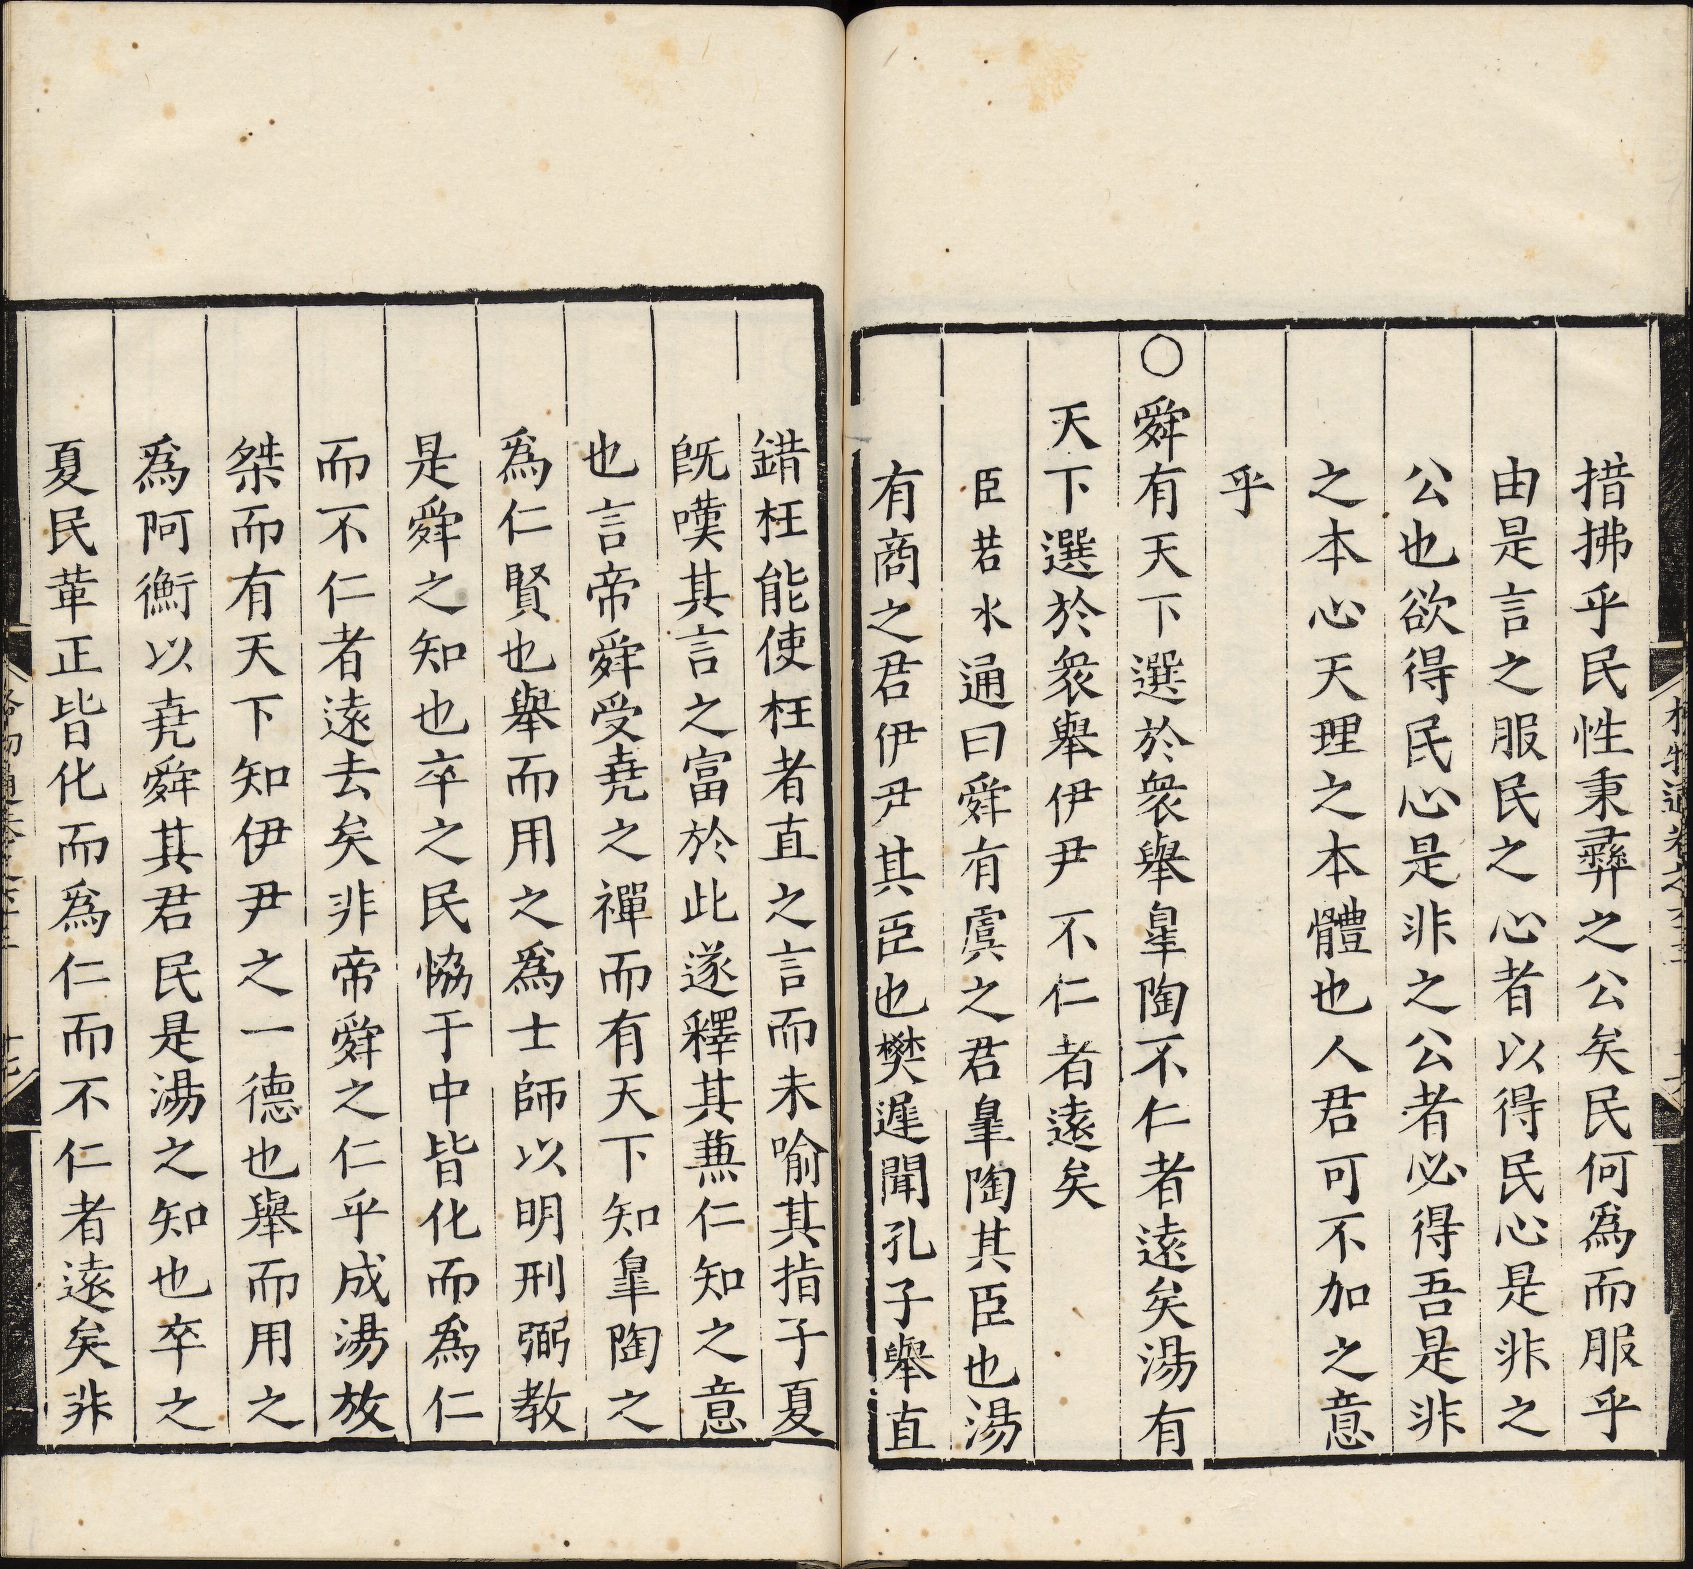 措拂乎民性秉彞之公矣民何爲而服乎
由是言之服民之心者以得民心是非之
公也欲得民心是非之公者必得吾是非
之本心天理之本體也人君可不加之意
乎
○舜有天下選於衆舉臯陶不仁者遠矣湯有
天下選於衆舉伊尹不仁者遠矣
臣若水通曰舜有虞之君臯陶其臣也湯
有商之君伊尹其臣也樊遲聞孔子舉直
錯枉能使枉者直之言而未喻其指子夏
既嘆其言之富於此遂釋其兼仁知之意
也言帝舜受堯之禪而有天下知臯陶之
爲仁賢也舉而用之爲士師以明刑弼教
是舜之知也卒之民恊于中皆化而爲仁
而不仁者遠去矣非帝舜之仁乎成湯放
桀而有天下知伊尹之一德也舉而用之
爲阿衡以堯舜其君民是湯之知也卒之
夏民革正皆化而爲仁而不仁者遠矣非